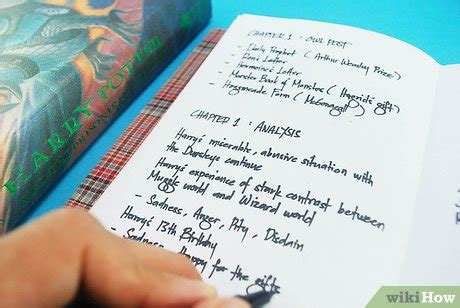 HARRY POTTER
CHAPTER 1 : OWL POST
- Daily Prophet (Arthur Weasley Prize)
- Ron's Letter
- Hermione's Letter
- Monster Book of Monsters (Hagrid's gift)
- Hogsmeade Form (McGonagall)
CHAPTER 1 : ANALYSIS
Harry's miserable, abusive situation with
the Dursleys continue
Harry's experience of stark contrast between
Muggle world and Wizard world
- Sadness, Anger, Pity, Disdain
Harry's 13th Birthday
- Sadness, Happy for the gifts
wikiHow